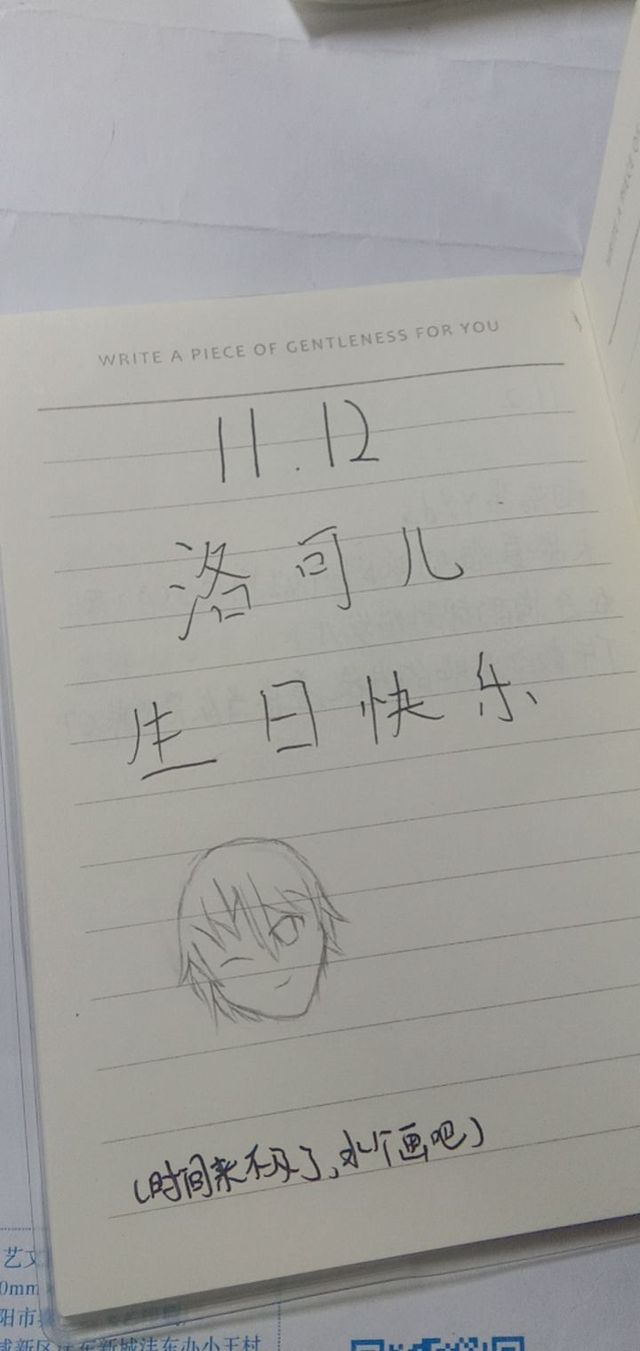 WRITE A PIECE OF GENTLENESS FOR YOU
11.12
洛可儿
生日快乐
(时间来不及了,水个画吧)
艺文
0mm
阳市
城新区沣东新城沣东办小王村